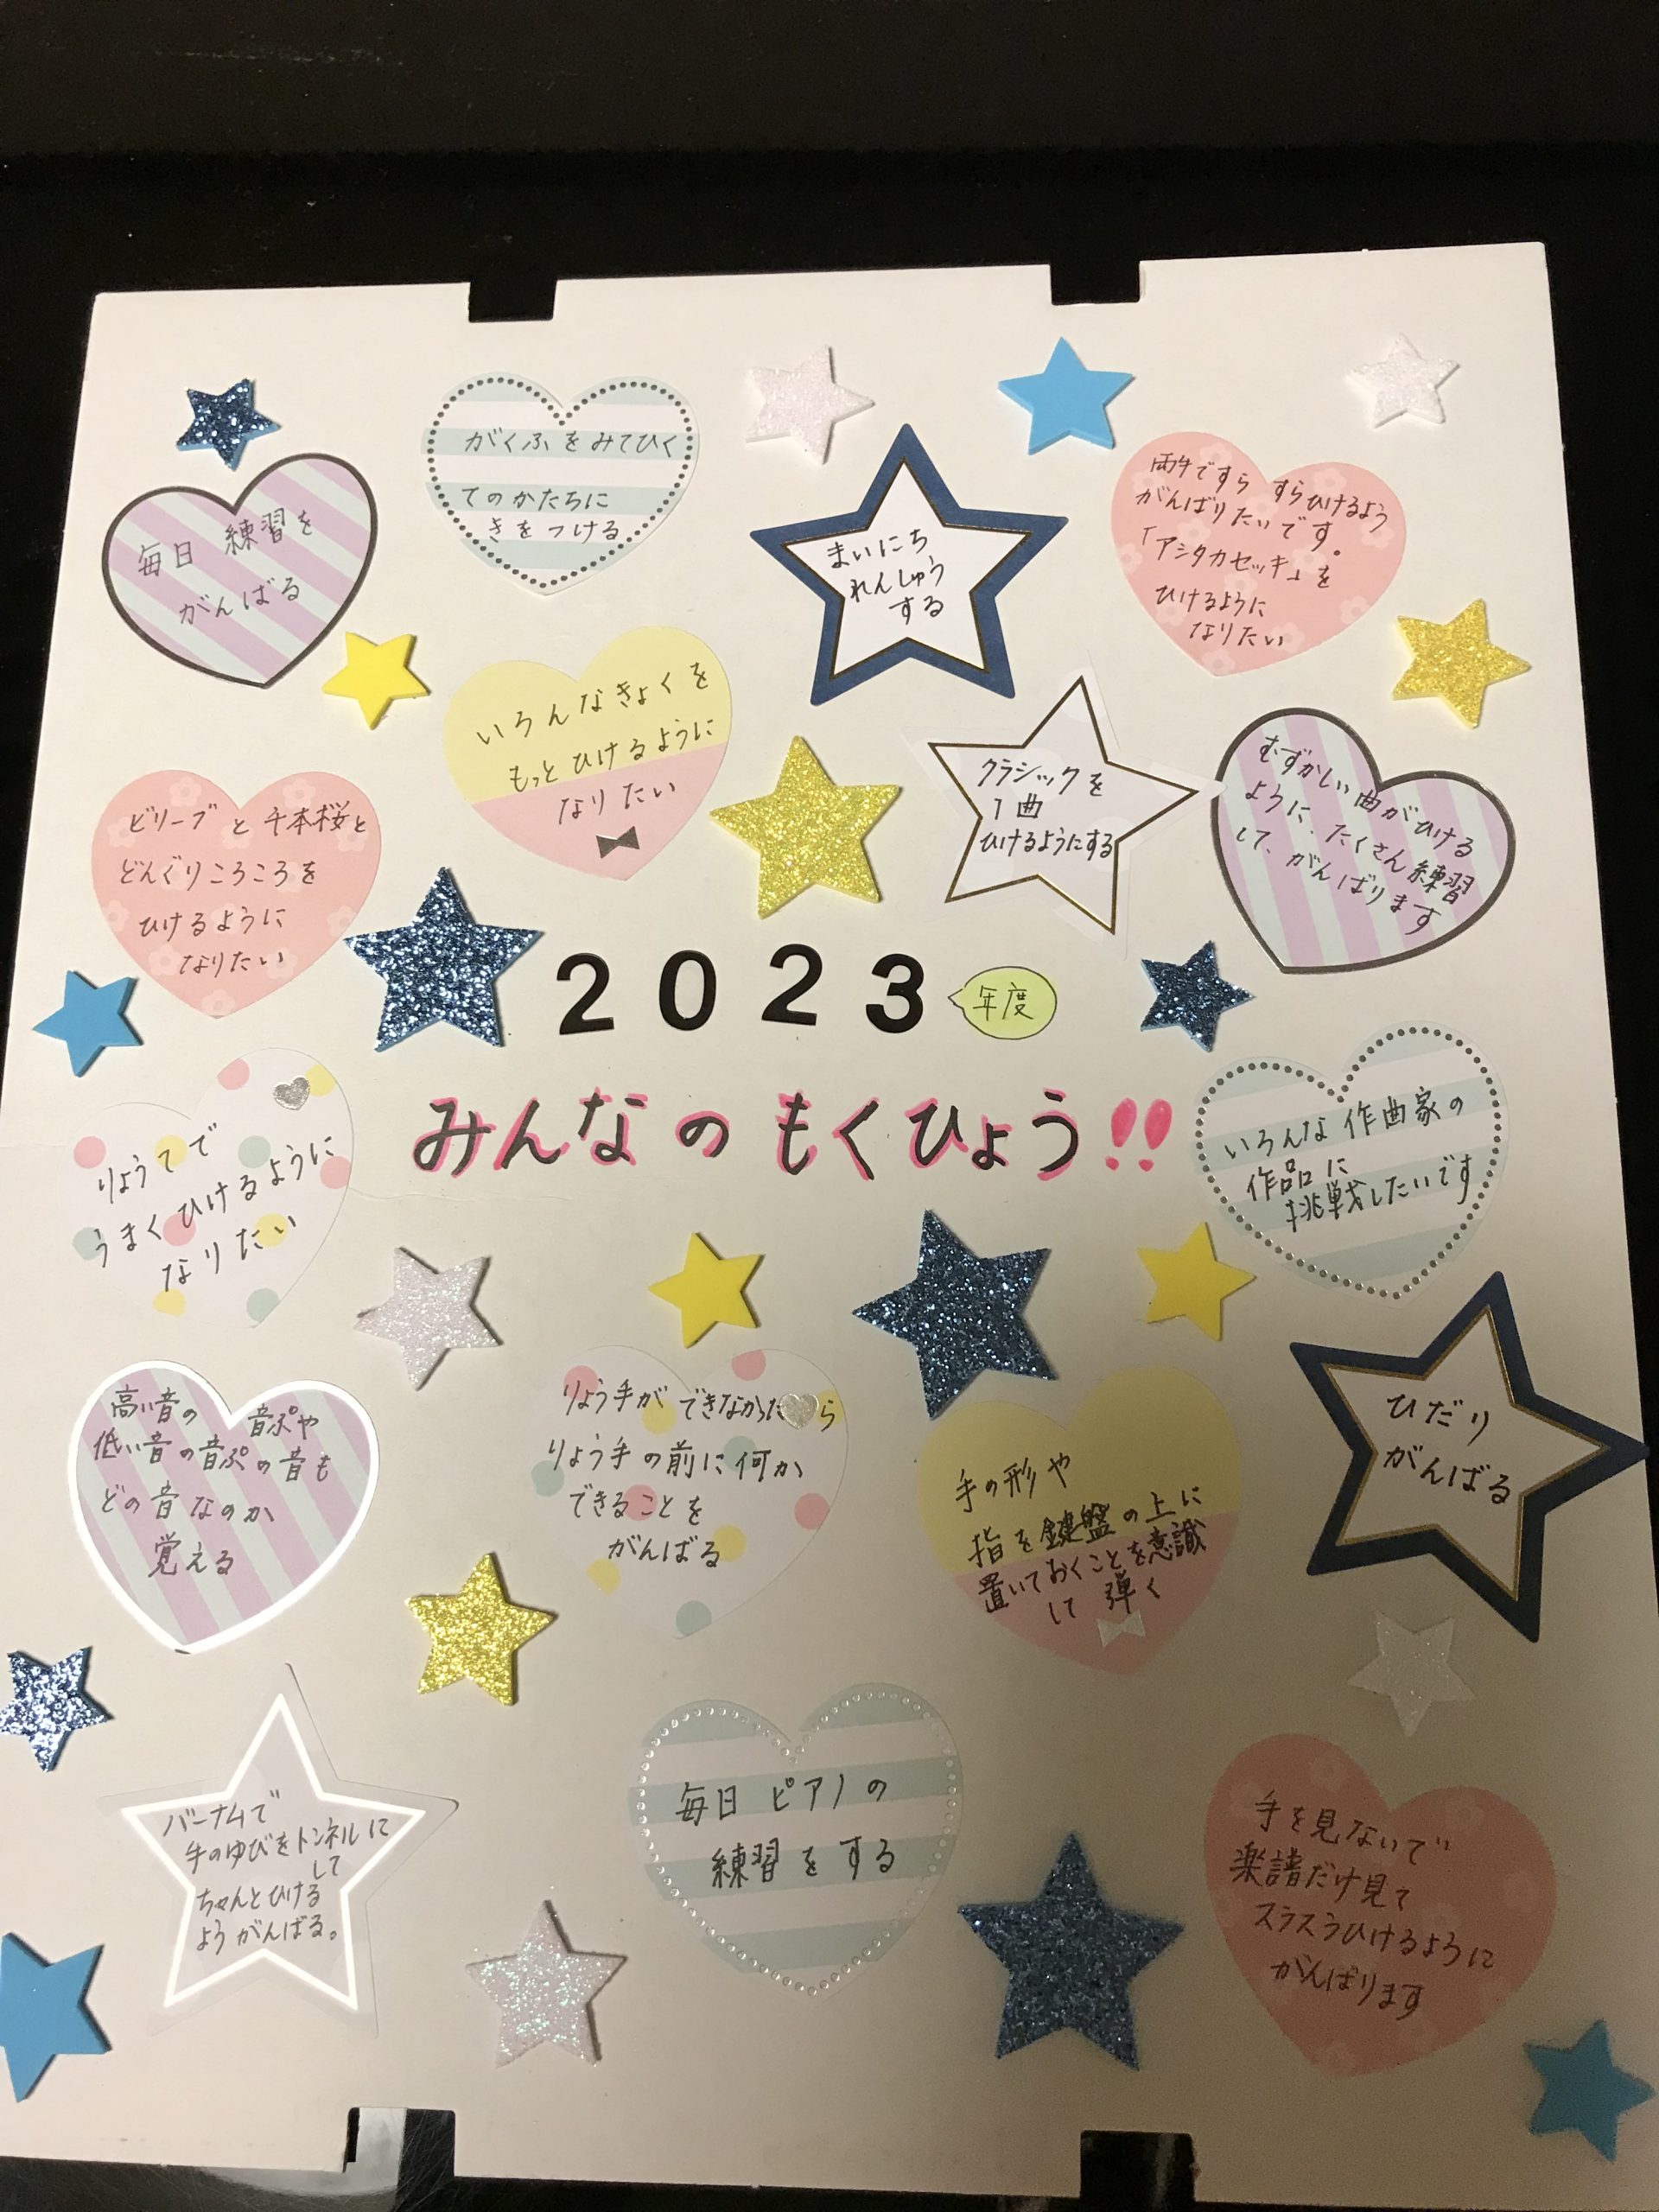 毎日 練習を
がんばる
がくふをみてひく
てのかたちに
きをつける
まいにち
れんしゅう
する
両手ですらすらひけるよう
がんばりたいです。
「アシタカセッキ」を
ひけるように
なりたい
いろんなきょくを
もっとひけるように
なりたい
クラシックを
1曲
ひけるようにする
むずかしい曲がひける
ように、たくさん練習
して、がんばります
ビリーブと千本桜と
どんぐりころころを
ひけるように
なりたい
2023年度
みんなのもくひょう!!
りょうてで
うまくひけるように
なりたい
いろんな作曲家の
作品に
挑戦したいです
高い音の音ぷや
低い音の音ぷの音も
どの音なのか
覚える
りょう手ができなかったら
りょう手の前に何か
できることを
がんばる
手の形や
指を鍵盤の上に
置いておくことを意識
して弾く
ひだり
がんばる
バーナムで
手のゆびをトンネルに
して
ちゃんとひける
ようがんばる。
毎日ピアノの
練習をする
手を見ないで
楽譜だけ見て
スラスラひけるように
がんばります